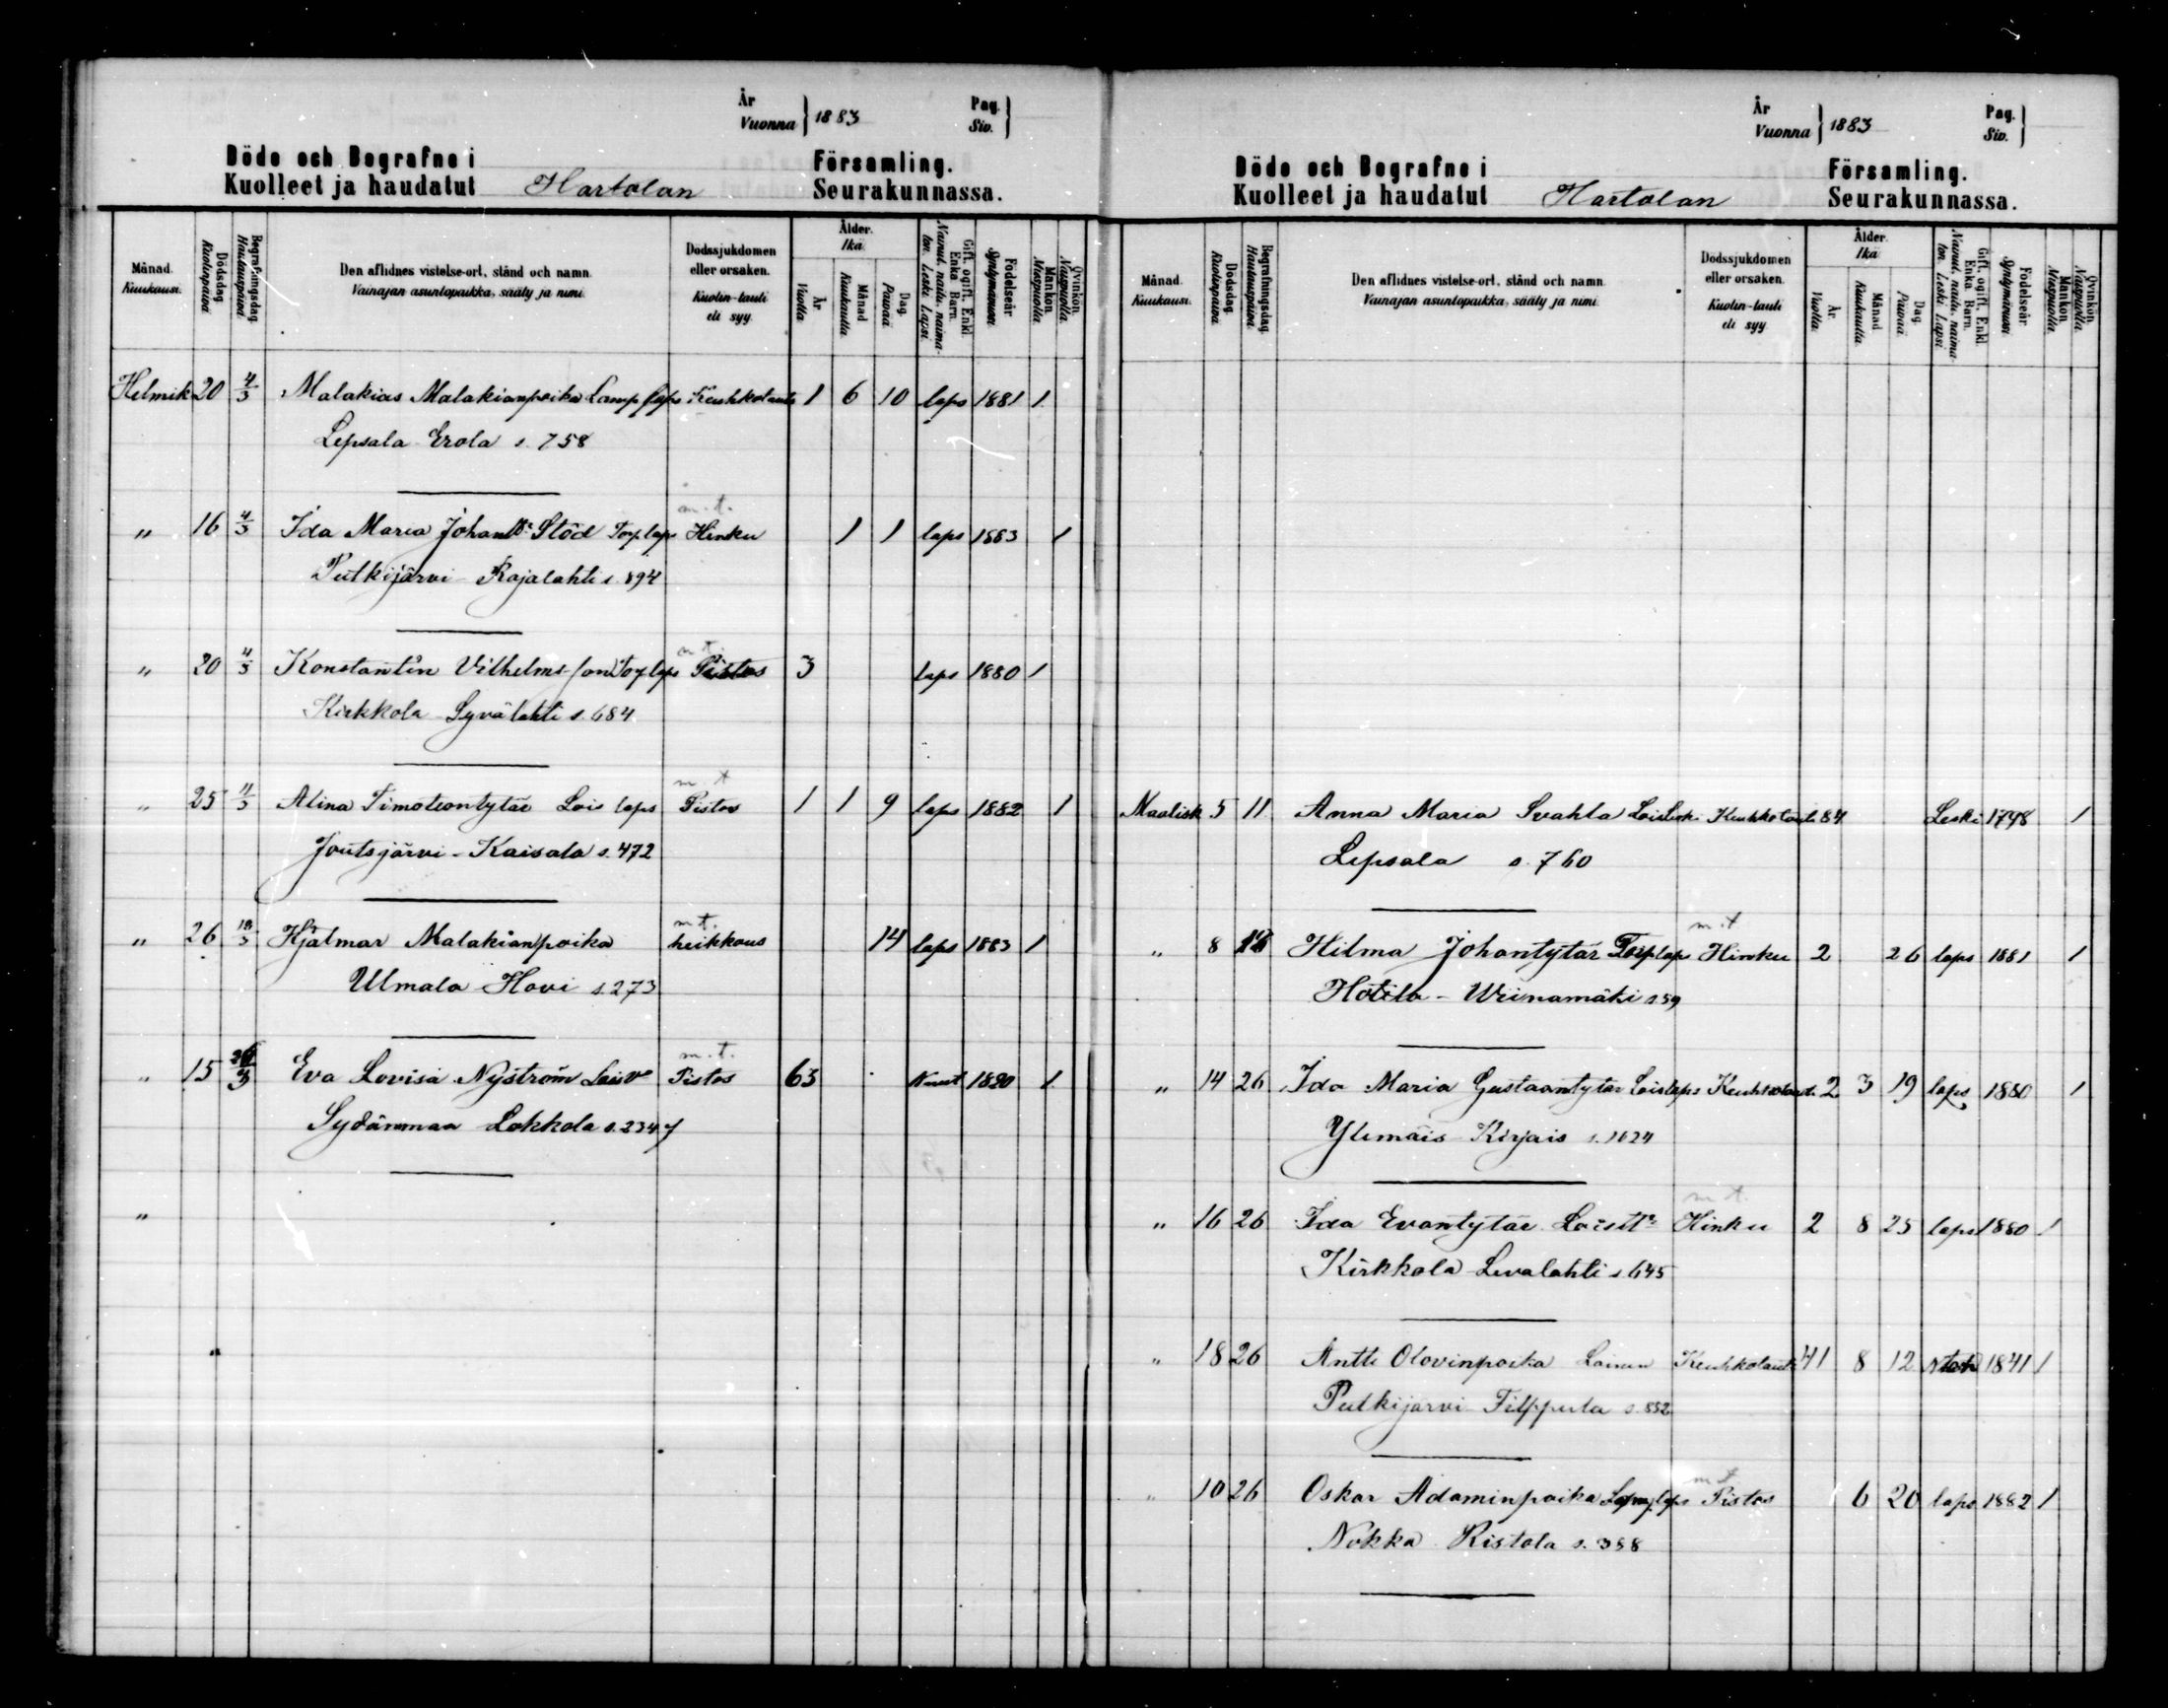 År
Vuonna } 1883 Pag. Siv. }
Döde och Begrafne i Församling.
Kuolleet ja haudatut Hartolan Seurakunnassa.
Månad. Kuukausi. Dödsdag Kuolinpäivä Begrafningsdag. Hautauspäivä Den aflidnes vistelse-ort, stånd och namn. Vainajan asuntopaikka, sääty ja nimi. Dödssjukdomen eller orsaken. Kuolin-tauti eli syy. Ålder. Ikä. År Vuotta Månad Kuukautta. Dag. Päivää Gift, ogift, Enkl. Enka Barn. Nainut, naitu, naimaton. Leski. Lapsi. Födelseår Syntymävuosi Mankön. Miespuolia Qvinkön. Naispuolia.
Helmik 20 4/3 Malakias Malakianpoika Lamp laps Keuhkotauti 1 6 10 laps 1881 1
Lepsala Erola s. 758
m.t.
" 16 4/3 Ida Maria Johan Dr Stöd Torp laps Hinku 1 1 laps 1883 1
Putkijärvi Rajalahti s. 894
m.t.
" 20 4/3 Konstantin Vilhelms-son Torp laps Pistos 3 laps 1880 1
Kirkkola Syvälahti s. 684
m.t
" 25 4/3 Alina Timoteontytär Lois laps Pistos 1 1 9 laps 1882 1
Joutsjärvi - Kaisala s. 472
m.t.
" 26 18/3 Hjalmar Malakianpoika heikkous 14 laps 1883 1
Ulmala Hovi s. 273
m.t.
" 15 3 Eva Lovisa Nyström Loisv Pistos 63 1820 1
Sydänmaa Lokkola s. 234
"
År
Vuonna } 1883 Pag. Siv. }
Döde och Begrafne i Församling.
Kuolleet ja haudatut Hartolan Seurakunnassa.
Månad. Kuukausi. Dödsdag. Kuolinpäivä. Begrafningsdag. Hautauspäivä. Den aflidnes vistelse-ort, stånd och namn. Vainajan asuntopaikka, sääty ja nimi. Dödssjukdomen eller orsaken. Kuolin-tauti eli syy. Ålder. Ikä. År. Vuotta. Månad Kuukautta. Dag. Päivää. Gift, ogift, Enkl. Enka Barn. Nainut, naitu, naimaton. Leski. Lapsi Födelseår Syntymävuosi Mankön. Miespuolia. Qvinkön. Naispuolia.
Maalisk 5 11 Anna Maria Svahla Loislesk. Keuhkotauti 84 Leski 1798 1
Lepsala s. 760
m.t
" 8 Hilma Johantytär Torp laps Hinku 2 26 laps 1881 1
Hotila - Wiinamäki s 59
" 14 26 Ida Maria Gustaantytär Loislaps Keuhkotaut. 2 3 19 laps 1880 1
Ylemäis Kirjais s. 1024
m.t.
" 16 26 Ida Evantytär Loistr Hinku 2 8 25 laps 1880 1
Kirkkola Levalahti s 645
" 18 26 Antti Olovinpoika Loinen Keuhkotauti 41 8 12 1841 1
Putkijärvi Filppula s. 852
m.t
" 10 26 Oskar Adaminpoika laps Pistos 6 20 laps 1882 1
Nokka Ristola s. 358